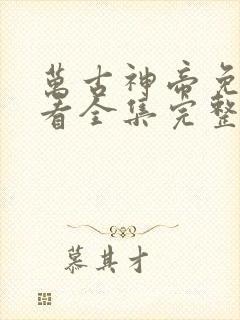 萬古神帝免
看全集完整
慕其才